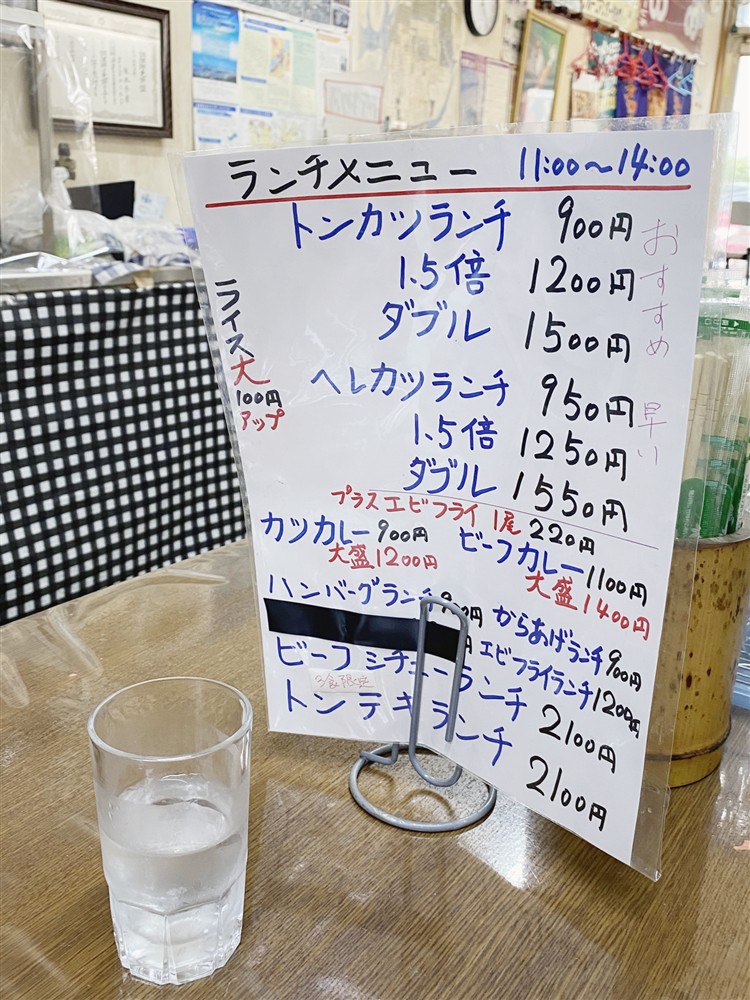 ランチメニュー 11:00〜14:00
トンカツランチ 900円
1.5倍 1200円
ダブル 1500円
ヘレカツランチ 950円
1.5倍 1250円
ダブル 1550円
おすすめ 早い
ライス大
100円
アップ
プラスエビフライ1尾220円
カツカレー900円
大盛1200円
ビーフカレー1100円
大盛1400円
ハンバーグランチ
からあげランチ900円
エビフライランチ1200円
ビーフシチューランチ 2100円
3食限定
トンテキランチ 2100円